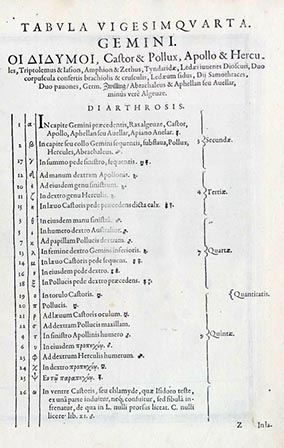 TABVLA VIGESIMQVARTA.
GEMINI.
ΟΙ ΔΙΔΥΜΟΙ, Castor & Pollux, Apollo & Hercu-
les, Triptolemus & Iasion, Amphion & Zethus, Tyndaridæ, Ledæi iuuenes Dioscuri, Duo
corpuscula consertis brachiolis & crusculis, Ledæum sidus, Dij Samothraces,
Duo pauones, Germ. Zwilling/ Abrachaleus & Aphellan seu Auellar,
minus verè Algeuze.
DIARTHROSIS.
1 α In capite Gemini præcedentis, Rasalgeuze, Castor,
Apollo, Aphellan seu Auellar, Apiano Anelar.
2 β In capite seu collo Gemini sequentis, subflaua, Pollux,
Hercules, Abrachaleus.
2 Secundæ.
17 γ In summo pede sinistro, sequentis.
12 δ Ad manum dextram Apollonis.
10 ε Ad eiusdem genu sinistrum.
11 ζ In dextro genu Herculis.
15 η In læuo Castoris pede præcedens dicta calx.
4 Tertiæ.
3 θ In eiusdem manu sinistra.
5 ι In humero dextro Australior.
7 κ Ad papillam Pollucis dextram.
13 λ In femine dextro Gemini inferioris.
14 μ In læuo Castoris pede sequens.
16 ν In eiusdem pede dextro.
18 ξ In Pollucis pede dextro præcedens.
7 Quartæ.
19 ο In torulo Castoris.
10 π Pollucis.
Quantitatis.
21 ρ Ad læuum Castoris oculum.
22 σ Ad dextram Pollucis maxillam.
4 τ In sinistro Apollinis humero
6 υ In eiusdem
13 φ Ad dextrum Herculis humerum.
14 χ In dextro
15 ψ
16 ω In ventre Castoris, seu chlamyde, quæ Isidoro teste,
ex vnâ parte induitur, neq; consuitur, sed fibula in-
frenatur, de qua in L. nulli prorsus liceat. C. nulli
licere lib. xi.
9 Quintæ.
Z In la-